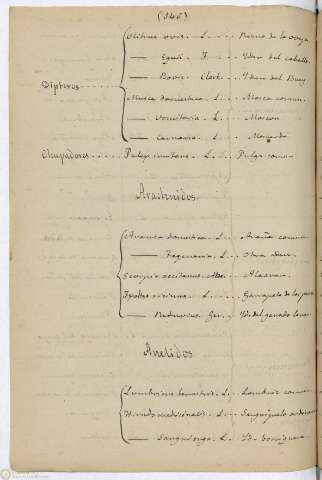 (346)
Œstrus ovis. L. .... Rezno de la oveja
—— Equi. F. .... Ydem del caballo.
—— Bovis. Clerk. .. Ydem del Buey
Dípteros .....
Musca domestica. L. .... Mosca comun.
—— Vomitoria. L. .... Moscon
—— Carnaria. L. ....
Chupadores ..... Pulex irritans. L. .... Pulga comun
Arachnidos
Aranea domestica. L. ... Araña comun
—— L. ... Otra idem.
Scorpio occitanus. ... Alacran.
Ixodes ricinus. L. .... Garrapata de los perros
—— Reduvius. Ger. .. Yd. del ganado lanar
Anelidos
Lumbricus terrestris. L. .. Lombriz comun
Hirudo medicinalis. L. ... Sanguijuela
—— Sanguisuga. L. ... Yd. borriquera